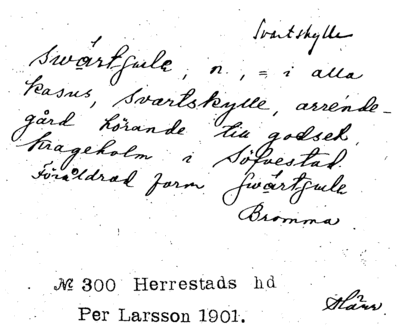 Svartskylle
swártgule, n., = i alla
kasus, svartskylle, arrende-
gård hörande till godset
krageholm i Sölvestad.
Föråldrad form swártgule
Bromma.
№ 300 Herrestads hd
Per Larsson 1901.
Skåne